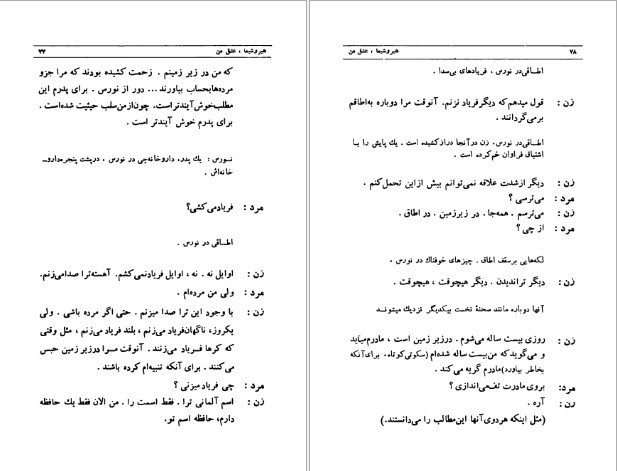 هیروشیما ، عشق من ۷۷
که من در زیر زمینم . زحمت کشیده بودند که مرا جزو
مرده‌هابحساب بیاورند ... دور از نورس . برای پدرم این
مطلب‌خوش‌آیندتراست. چون‌ازمن‌سلب حیثیت شده‌است .
برای پدرم خوش آیندتر است .
نورس : یك پدر، داروخانه‌چی در نورس . درپشت پنجره‌دارو-
خانه‌اش .
مرد : فریادمی‌کشی؟
اطاقی در نورس .
زن : اوایل نه . نه ، اوایل فریادنمی‌کشم. آهسته‌ترا صدامی‌زنم.
مرد : ولی من مرده‌ام .
زن : با وجود این ترا صدا میزنم . حتی اگر مرده باشی . ولی
یکروز، ناگهان‌فریاد می‌زنم ، بلند فریاد می‌زنم ، مثل وقتی
که کرها فریاد می‌زنند . آنوقت مرا درزیر زمین حبس
می‌کنند . برای آنکه تنبیه‌ام کرده باشند .
مرد : چی فریاد میزنی ؟
زن : اسم آلمانی ترا . فقط اسمت را . من الان فقط یك حافظه
دارم، حافظه اسم تو.
۷۸ هیروشیما ، عشق من
اطاقی‌در نورس . فریادهای بی‌صدا .
زن : قول میدهم‌که دیگرفریاد نزنم. آنوقت مرا دوباره به‌اطاقم
برمی‌گردانند .
اطاقی‌در نورس. زن درآنجا درازکشیده است . یك پایش را با
اشتیاق فراوان خم‌کرده است .
زن : دیگر ازشدت علاقه نمی‌توانم بیش ازاین تحمل‌کنم .
مرد : می‌ترسی ؟
زن : می‌ترسم . همه‌جا . در زیرزمین . در اطاق .
مرد : از چی؟
لکه‌هایی برسقف اطاق . چیزهای خوفناك در نورس .
زن : دیگر ترانديدن . دیگر هیچوقت ، هیچوقت .
آنها دوباره مانند صحنهٔ نخست بیکدیگر نزدیك میشوند
زن : روزی بیست ساله می‌شوم . درزیر زمین است ، مادرم‌میاید
و می‌گوید که من‌بیست ساله شده‌ام (سکوتی‌کوتاه. برای آنکه
بخاطر بیاورد)مادرم گریه می کند .
مرد: بروی مادرت تف‌می‌اندازی ؟
زن : آره .
(مثل اینکه هردوی‌آنها این‌مطالب را می‌دانستند.)